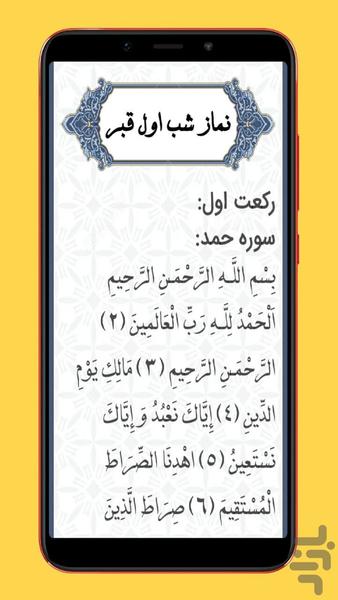 نماز شب اول قبر
رکعت اول:
سوره حمد:
بِسْمِ اللَّهِ الرَّحْمَٰنِ الرَّحِيمِ
اَلْحَمْدُ لِلَّهِ رَبِّ الْعَالَمِينَ (٢)
الرَّحْمَٰنِ الرَّحِيمِ (٣) مَالِكِ يَوْمِ
الدِّينِ (٤) إِيَّاكَ نَعْبُدُ وَ إِيَّاكَ
نَسْتَعِينُ (٥) اهْدِنَا الصِّرَاطَ
الْمُسْتَقِيمَ (٦) صِرَاطَ الَّذِينَ
بازار